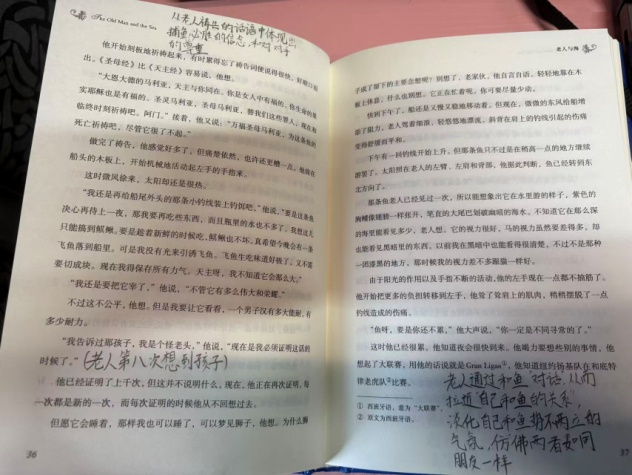 The Old Man and the Sea
从老人祷告的话语中体现出
捕鱼必胜的信息,和对对手
的尊重
他开始刻板地祈祷起来,有时累得忘了祷告词便说得很快,好顺口而
出。《圣母经》比《天主经》容易说,他想。
“大恩大德的马利亚,天主与你同在。你是女人中有福的,你生命的果
实耶稣也是有福的。圣灵马利亚,圣母马利亚,替我们这些罪人,现在和
临终时刻祈祷吧。阿门。”接着,他又说:“万福圣母马利亚,为这条鱼的
死亡祈祷吧,尽管它很了不起。”
做完了祷告,他感觉好多了,但痛楚依然,也许还更糟一点。他靠在
船头的木板上,开始机械地活动起左手的手指来。
这时微风徐来,太阳却还是很热。
“我还是再给船尾外头的那条小钓线装上钓饵吧,”他说,“要是这条鱼
决心再待上一夜,那我要再吃些东西,而且瓶里的水也不多了。我想这儿
只能搞到鲯鳅,要是趁着新鲜的时候吃,鲯鳅也不坏,真希望今晚会有一条
飞鱼落到船里。可是我没有光来引诱飞鱼。飞鱼生吃味道好极了,又不需
要切成块。现在我得保存所有力气。天主呀,我不知道它会那么大。”
“我还是要把它宰了,”他说,“不管它有多么伟大和荣耀。”
不过这不公平,他想。但是我要让它看看,一个男子汉有多大能耐,有
多少耐力。
“我告诉过那孩子,我是个怪老头,”他说,“现在是我必须证明这话的
时候了。”(老人第八次想到孩子)
他已经证明了上千次,但这并不说明什么。现在,他正在再次证明。每
一次都是新的一次,而每次证明的时候他从不回想过去。
但愿它会睡着,那样我也可以睡了,可以梦见狮子,他想。为什么狮
36
老人与海
子成了留下的主要念想呢?别想了,老家伙,他自言自语,轻轻地靠在木
板上休息,什么也别想。它正在忙着呢。你可要尽量少动。
快到下午了,船还是又慢又稳地移动着。但现在,微微的东风给船增
加了阻力。老人驾着细浪,轻悠悠地漂流,斜背在肩上的钓线引起的伤痛
变得舒缓而平和。
下午有一回钓线开始上升,但那条鱼只不过是在稍高一点的地方继续
游罢了。太阳照在老人的左臂、左肩和背部,他据此判断,鱼已经转到东
北方向了。
那条鱼老人已经见过一次,所以能想象出它在水里游的样子,紫色的
胸鳍像翅膀一样张开,笔直的大尾巴划破幽暗的海水。不知道它在那么深
的海里能看见多少,老人想。它的视力很好,马的视力虽然要差得多,却
也能看见黑暗里的东西。以前我在黑暗中也能看得很清楚,不过不是那种
一团漆黑的地方,那时候我的视力差不多跟猫一样好。
由于阳光的作用以及手指不断的活动,他的左手现在一点都不抽筋了。
他开始把更多的负担转移到左手,他耸了耸肩上的肌肉,稍稍摆脱了一点
钓线造成的伤痛。
“鱼呀,要是你还不累,”他大声说,“你一定是不同寻常的了。”
这时他已经很累,他知道夜会很快到来。他竭力要想些别的事情,他
想起了大联赛,用他的话说就是Gran Ligas①,他知道纽约扬基队在和底特
律老虎队②比赛。
① 西班牙语,意为“大联赛”。
② 原文为西班牙语。
老人通过和鱼对话,从而
拉近自己和鱼的关系,
淡化自己和鱼势不两立的
气氛,仿佛两者如同
朋友一样
37